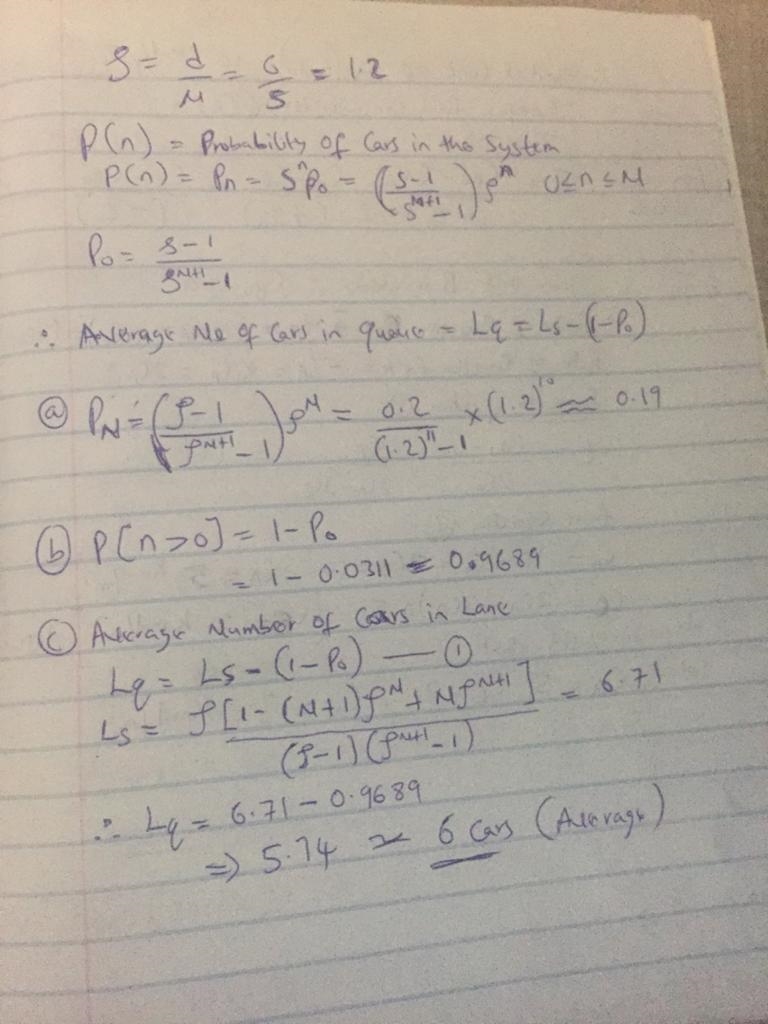 ρ = d/μ = 6/5 = 1.2
P(n) = Probability of Cars in the System
P(n) = Pn = ρ^n P0 = ((ρ-1)/(ρ^(N+1) -1)) ρ^n 0≤n≤N
P0 = (ρ-1)/(ρ^(N+1) -1)
∴ Average No of Cars in queue = Lq = Ls - (1-P0)
(a) PN = ((ρ-1)/(ρ^(N+1) -1)) ρ^N = 0.2/((1.2)^11 -1) × (1.2)^10 ≈ 0.19
(b) P[n>0] = 1-P0
= 1 - 0.0311 = 0.9689
(c) Average Number of Cars in Lane
Lq = Ls - (1-P0) — (1)
Ls = ρ[1-(N+1)ρ^N + Nρ^(N+1)]/((ρ-1)(ρ^(N+1) -1)) = 6.71
∴ Lq = 6.71 - 0.9689
⇒ 5.74 ≃ 6 Cars (Average)